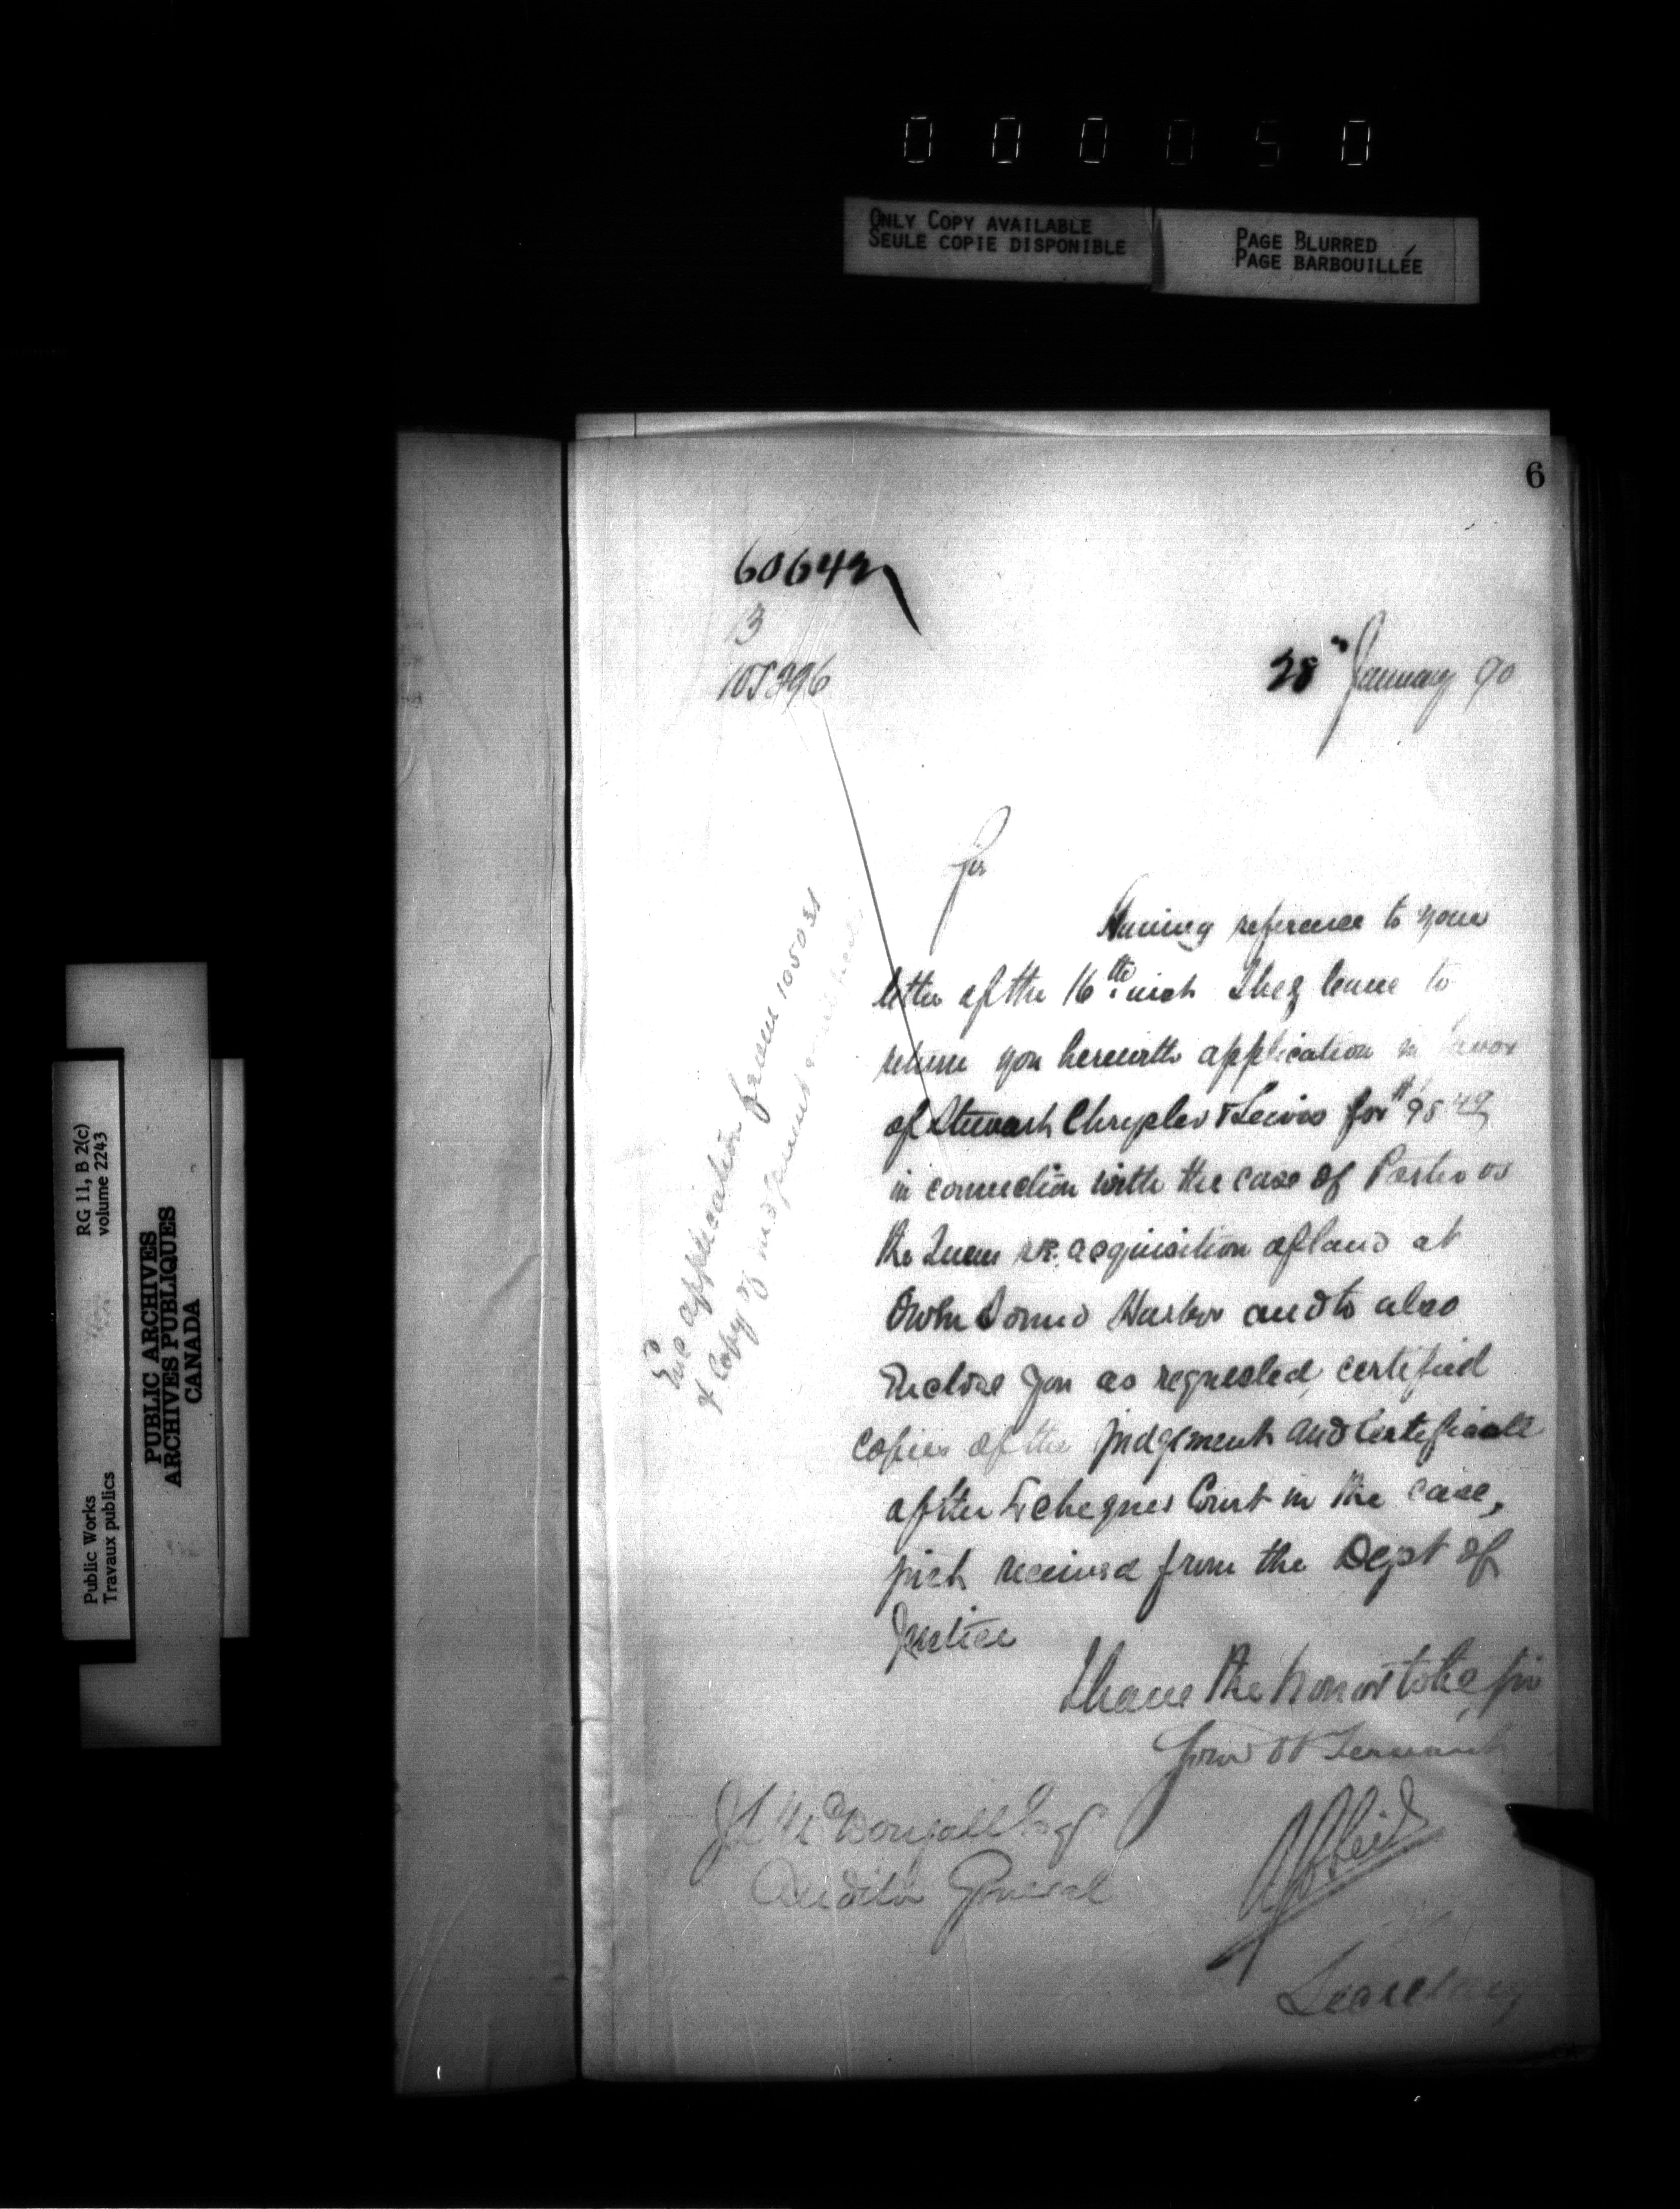 000050
ONLY COPY AVAILABLE
SEULE COPIE DISPONIBLE
PAGE BLURRED
PAGE BARBOUILLÉE
6
60642
3
28th January 90
Sir
Having reference to your
letter of the 16th inst I beg leave to
return you herewith application in favor
of Stewart Chrysler & Lewis for $98 49
in connection with the case of Porter vs
the Queen re acquisition of land at
Owen Sound Harbor and to also
enclose you as requested, certified
copies of the judgment and certificate
of the Exchequer Court in the case,
just received from the Dept of
Justice
I have the honor to be, Sir
Your Ob Servant
J L McDougall Esqr
Auditor General
Secretary
Enc application from 105031
& copy of judgment
RG 11, B 2(c)
volume 2243
Public Works
Travaux publics
PUBLIC ARCHIVES
ARCHIVES PUBLIQUES
CANADA